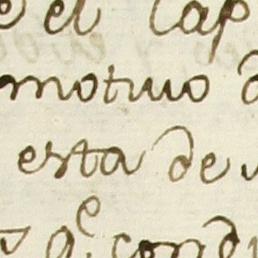 e el Cap
motiuo
esta de
qe. cond